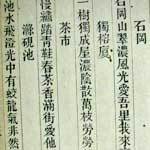 石岡
石岡山翠濃風光愛吾里我來
獨榕
一樹獨成濃陰散萬枝勞勞
茶市
踏青鞋春茶香滿街愛他
滌硯池
池水飛澄光中有蛟龍氣非然